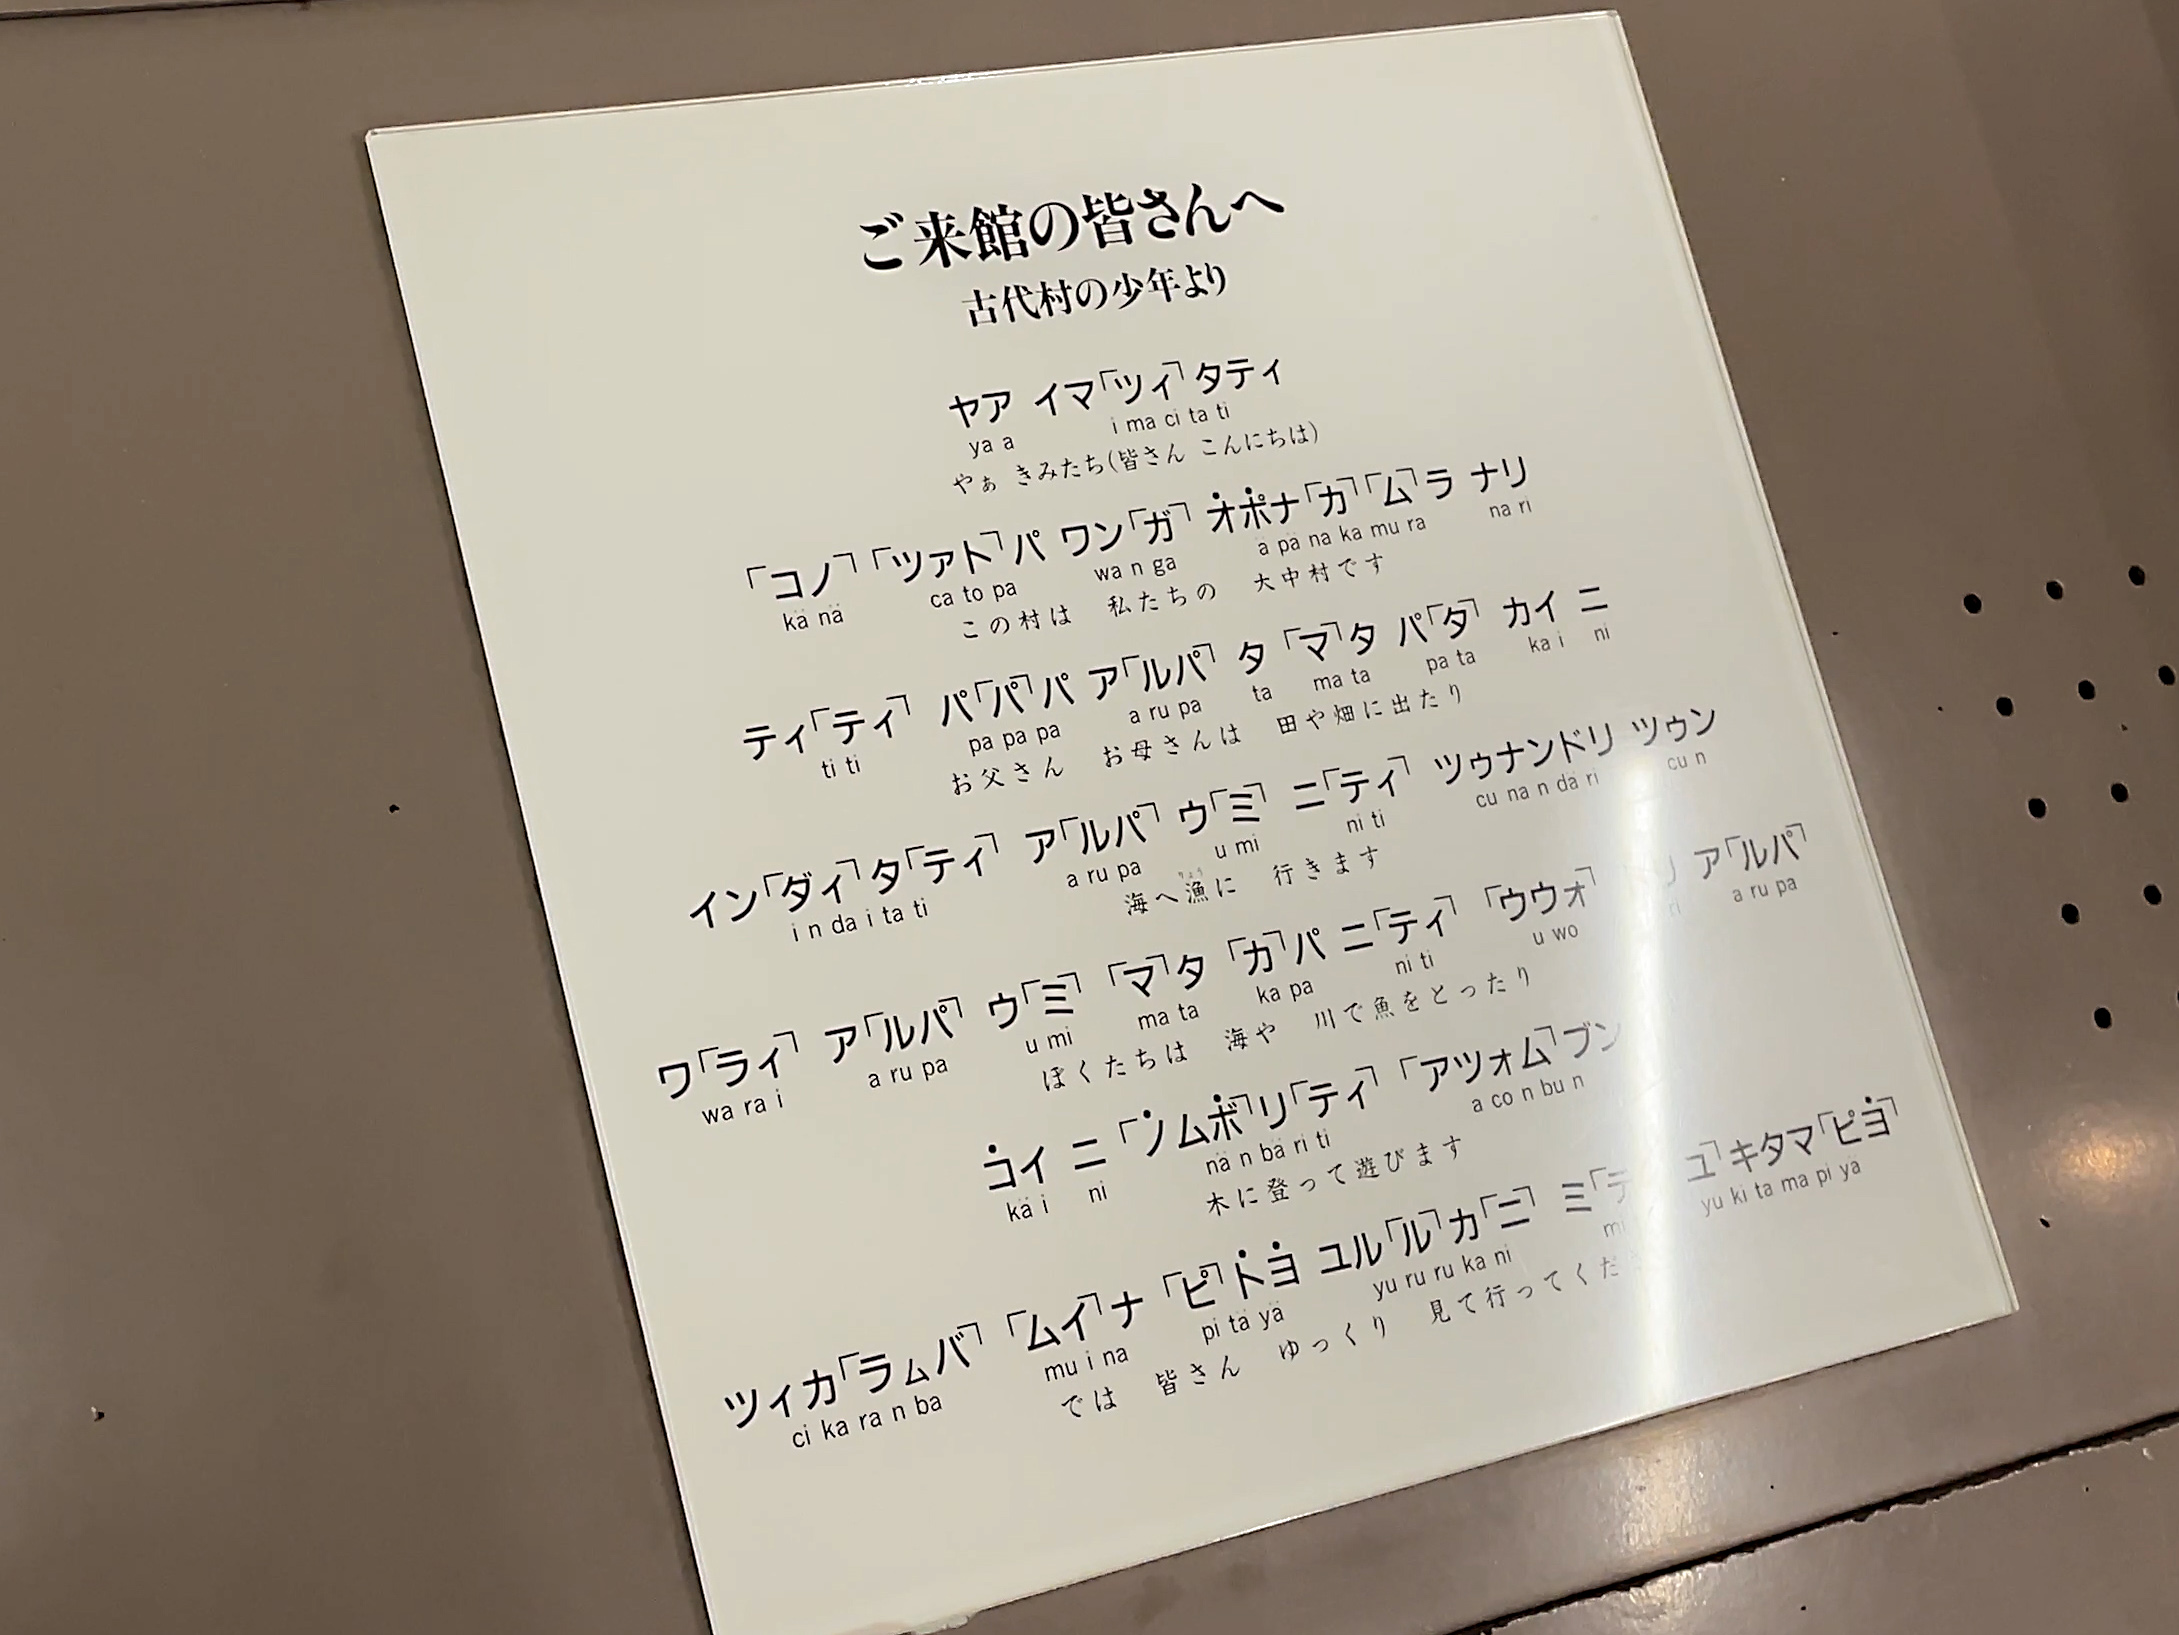 ご来館の皆さんへ
古代村の少年より
ヤア イマ「ツィ」タティ
ya a i ma ci ta ti
やぁ きみたち(皆さん こんにちは)
「コノ」「ツァト」パ ワン「ガ」 オ̇ポ̇ナ「カ」「ム」ラ ナリ
kä nä ca to pa wa n ga ä pä na ka mu ra na ri
この村は 私たちの 大中村です
ティ「ティ」 パ「パ」パ ア「ルパ」 タ 「マ」タ パ「タ」 カイ ニ
ti ti pa pa pa a ru pa ta ma ta pa ta ka i ni
お父さん お母さんは 田や畑に出たり
イン「ダィ」タ「ティ」 ア「ルパ」 ウ「ミ」 ニ「ティ」 ツゥナンドリ ツゥン
i n da i ta ti a ru pa u mi ni ti cu na n dä ri cu n
海へ漁に 行きます
りょう
ワ「ライ」 ア「ルパ」 ウ「ミ」 「マ」タ 「カ」パ ニ「ティ」 「ウウォ リ ア「ルパ」
wa ra i a ru pa u mi ma ta ka pa ni ti u wo ri a ru pa
ぼくたちは 海や 川で魚をとったり
コ̇イ ニ 「ノ̇ムボ̇」リ「ティ」 「アツォム」ブン
kä i ni nä n bä ri ti a co n bu n
木に登って遊びます
ツィカ「ラムバ」 「ムイ」ナ 「ピ」ト̇ヨ̇ ユル「ル」カ「ニ」 ミ「テ ユ」キタマ「ピヨ̇」
ci ka ra n ba mu i na pi tä yä yu ru ru ka ni mi yu ki ta ma pi yä
では 皆さん ゆっくり 見て行ってくだ